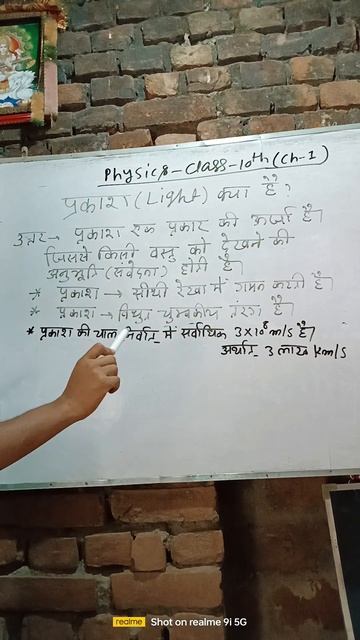 Physics-Class-10th (Ch-1)
प्रकाश (Light) क्या है?
उत्तर → प्रकाश एक प्रकार की ऊर्जा है।
जिससे किसी वस्तु को देखने की
अनुभूति (संवेदना) होती है।
* प्रकाश → सीधी रेखा में गमन करती है।
* प्रकाश → विद्युत चुम्बकीय तरंग है।
* प्रकाश की चाल निर्वात में सर्वाधिक 3×10⁸ m/s है।
अर्थात् 3 लाख km/s
realme Shot on realme 9i 5G